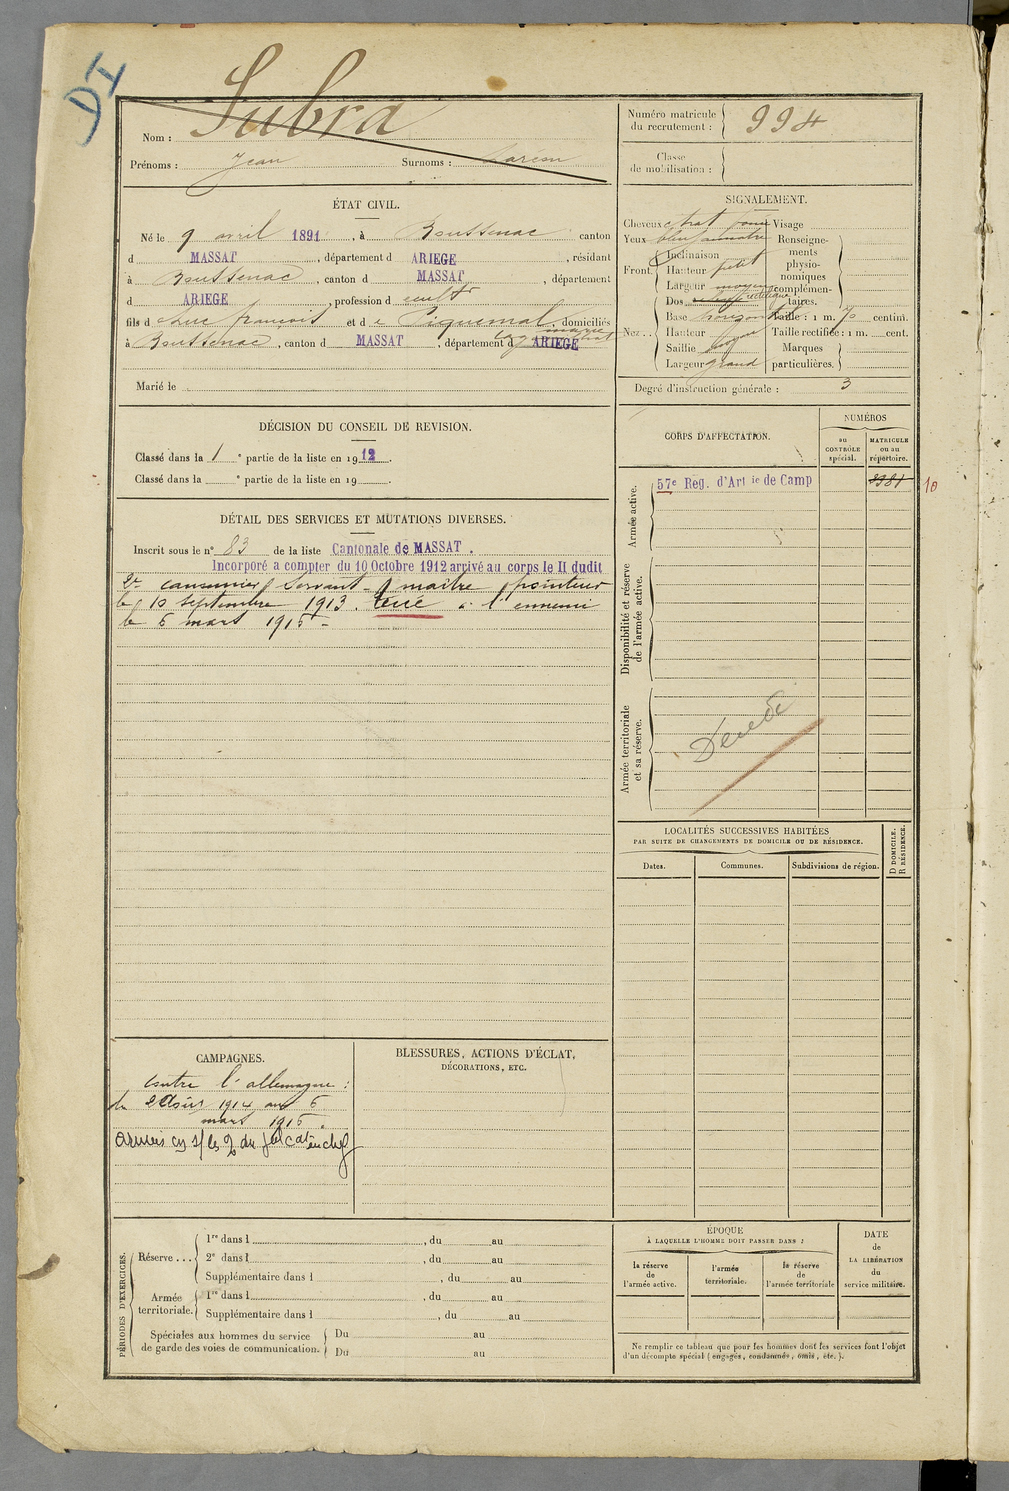 DI
Nom : Subra
Prénoms : Jean Surnoms :
Numéro matricule du recrutement : 994
Classe de mobilisation :
ÉTAT CIVIL.
Né le 9 avril 1891, à Boussenac canton
d MASSAT, département d ARIEGE, résidant
à Boussenac, canton d MASSAT, département
d ARIEGE, profession d cultr
fils d e Luc françois et d e Piquemal marie, domiciliés
à Boussenac, canton d MASSAT, département d ARIEGE
Marié le
SIGNALEMENT.
Cheveux chat Visage
Yeux bleu Renseignements physionomiques complémentaires.
Front. Inclinaison
Hauteur petit
Largeur moyen
Nez. Dos rectiligne
Base horizon Taille : 1 m. 70 centim.
Hauteur Taille rectifiée : 1 m. cent.
Saillie moyen Marques particulières.
Largeur grand
Degré d'instruction générale : 3
DÉCISION DU CONSEIL DE REVISION.
Classé dans la 1e partie de la liste en 1912.
Classé dans la e partie de la liste en 19 .
CORPS D'AFFECTATION.
NUMÉROS
au CONTRÔLE spécial.
MATRICULE ou au répertoire.
Armée active.
57e Reg. d'Art ie de Camp 10
DÉTAIL DES SERVICES ET MUTATIONS DIVERSES.
Inscrit sous le n° 83 de la liste Cantonale de MASSAT.
Incorporé a compter du 10 Octobre 1912 arrivé au corps le II dudit
2e canonnier servant maitre pointeur
le 10 septembre 1913. tué à l'ennemi
le 6 mart 1915 -
Disponibilité et réserve de l'armée active.
Armée territoriale et sa réserve.
Décédé
LOCALITÉS SUCCESSIVES HABITÉES
PAR SUITE DE CHANGEMENTS DE DOMICILE OU DE RÉSIDENCE.
Dates.
Communes.
Subdivisions de région.
D DOMICILE.
R RÉSIDENCE.
CAMPAGNES.
contre l'allemagne :
du 2 Août 1914 au 6
mart 1915.
BLESSURES, ACTIONS D'ÉCLAT,
DÉCORATIONS, ETC.
PÉRIODES D'EXERCICES.
Réserve ... 1re dans l , du au
2e dans l , du au
Supplémentaire dans l , du au
Armée territoriale. 1re dans l , du au
Supplémentaire dans l , du au
Spéciales aux hommes du service de garde des voies de communication. Du au
Du au
ÉPOQUE
À LAQUELLE L'HOMME DOIT PASSER DANS :
la réserve de l'armée active.
l'armée territoriale.
la réserve de l'armée territoriale
DATE de LA LIBÉRATION du service militaire.
Ne remplir ce tableau que pour les hommes dont les services font l'objet
d'un décompte spécial (engagés, condamnés, omis, etc.).